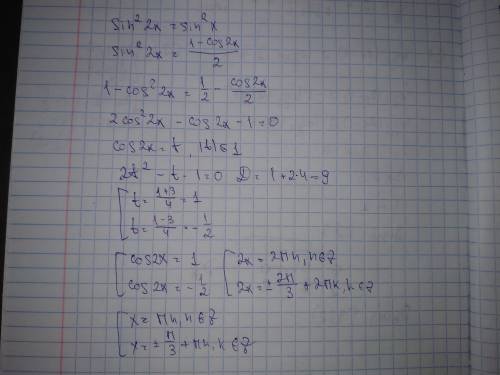 sin² 2x = sin² x
sin² 2x = (1 - cos2x)/2
1 - cos² 2x = 1/2 - cos2x/2
2cos² 2x - cos2x - 1 = 0
cos2x = t , |t| ≤ 1
2t² - t - 1 = 0 D = 1 + 2·4 = 9
[ t = (1+3)/4 = 1
t = (1-3)/4 = -1/2
[ cos2x = 1 [ 2x = 2πn, n∈Z
cos2x = -1/2 2x = ± 2π/3 + 2πk, k∈Z
[ x = πn, n∈Z
x = ± π/3 + πk, k∈Z